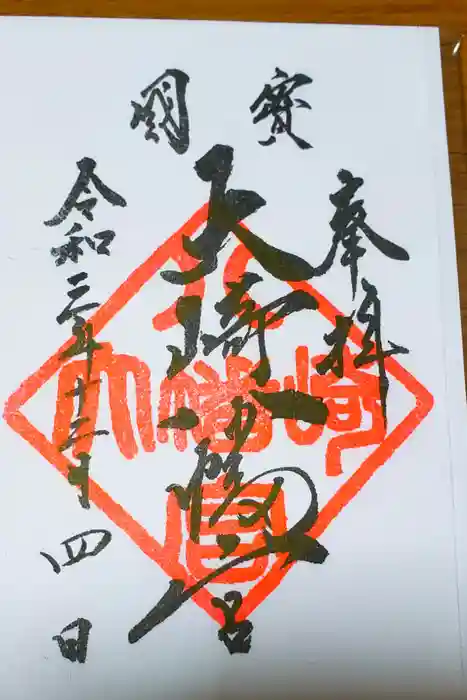 國寶
奉拝
大崎八幡宮
令和三年十二月四日
大崎八幡宮